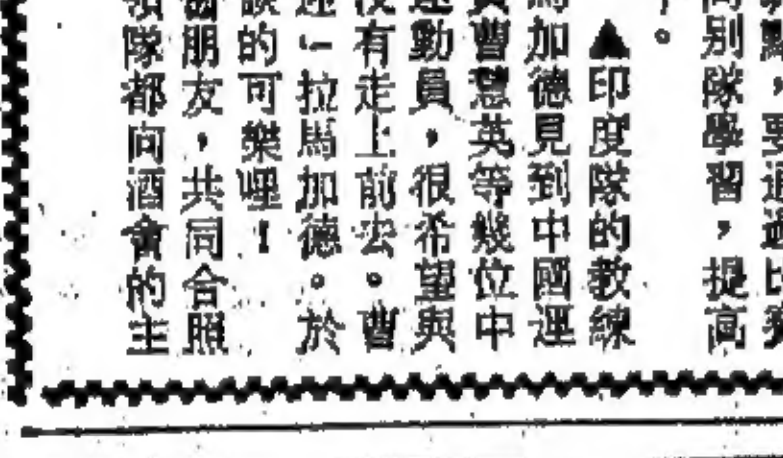 點，要通過比賽
別隊學習，提高
。
▲印度隊的教練
馬加德見到中國運
員曹慧英等幾位中
運動員，很希望與
沒有走上前去。曹
拉馬加德。於
談的可樂哩！
朋友，共同合照
領隊都向酒會的主